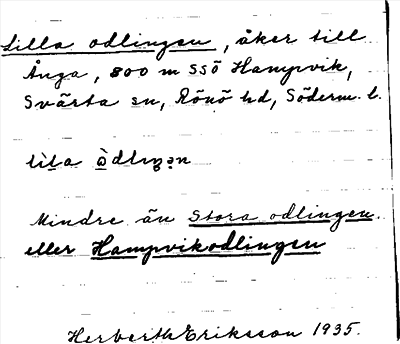 Lilla odlingen, åker till
Ånga, 800 m SSÖ Hampvik,
Svärta sn, Rönö hd, Söderm. l.
Mindre än Stora odlingen.
eller Hampvikodlingen
Herberth Eriksson 1935.